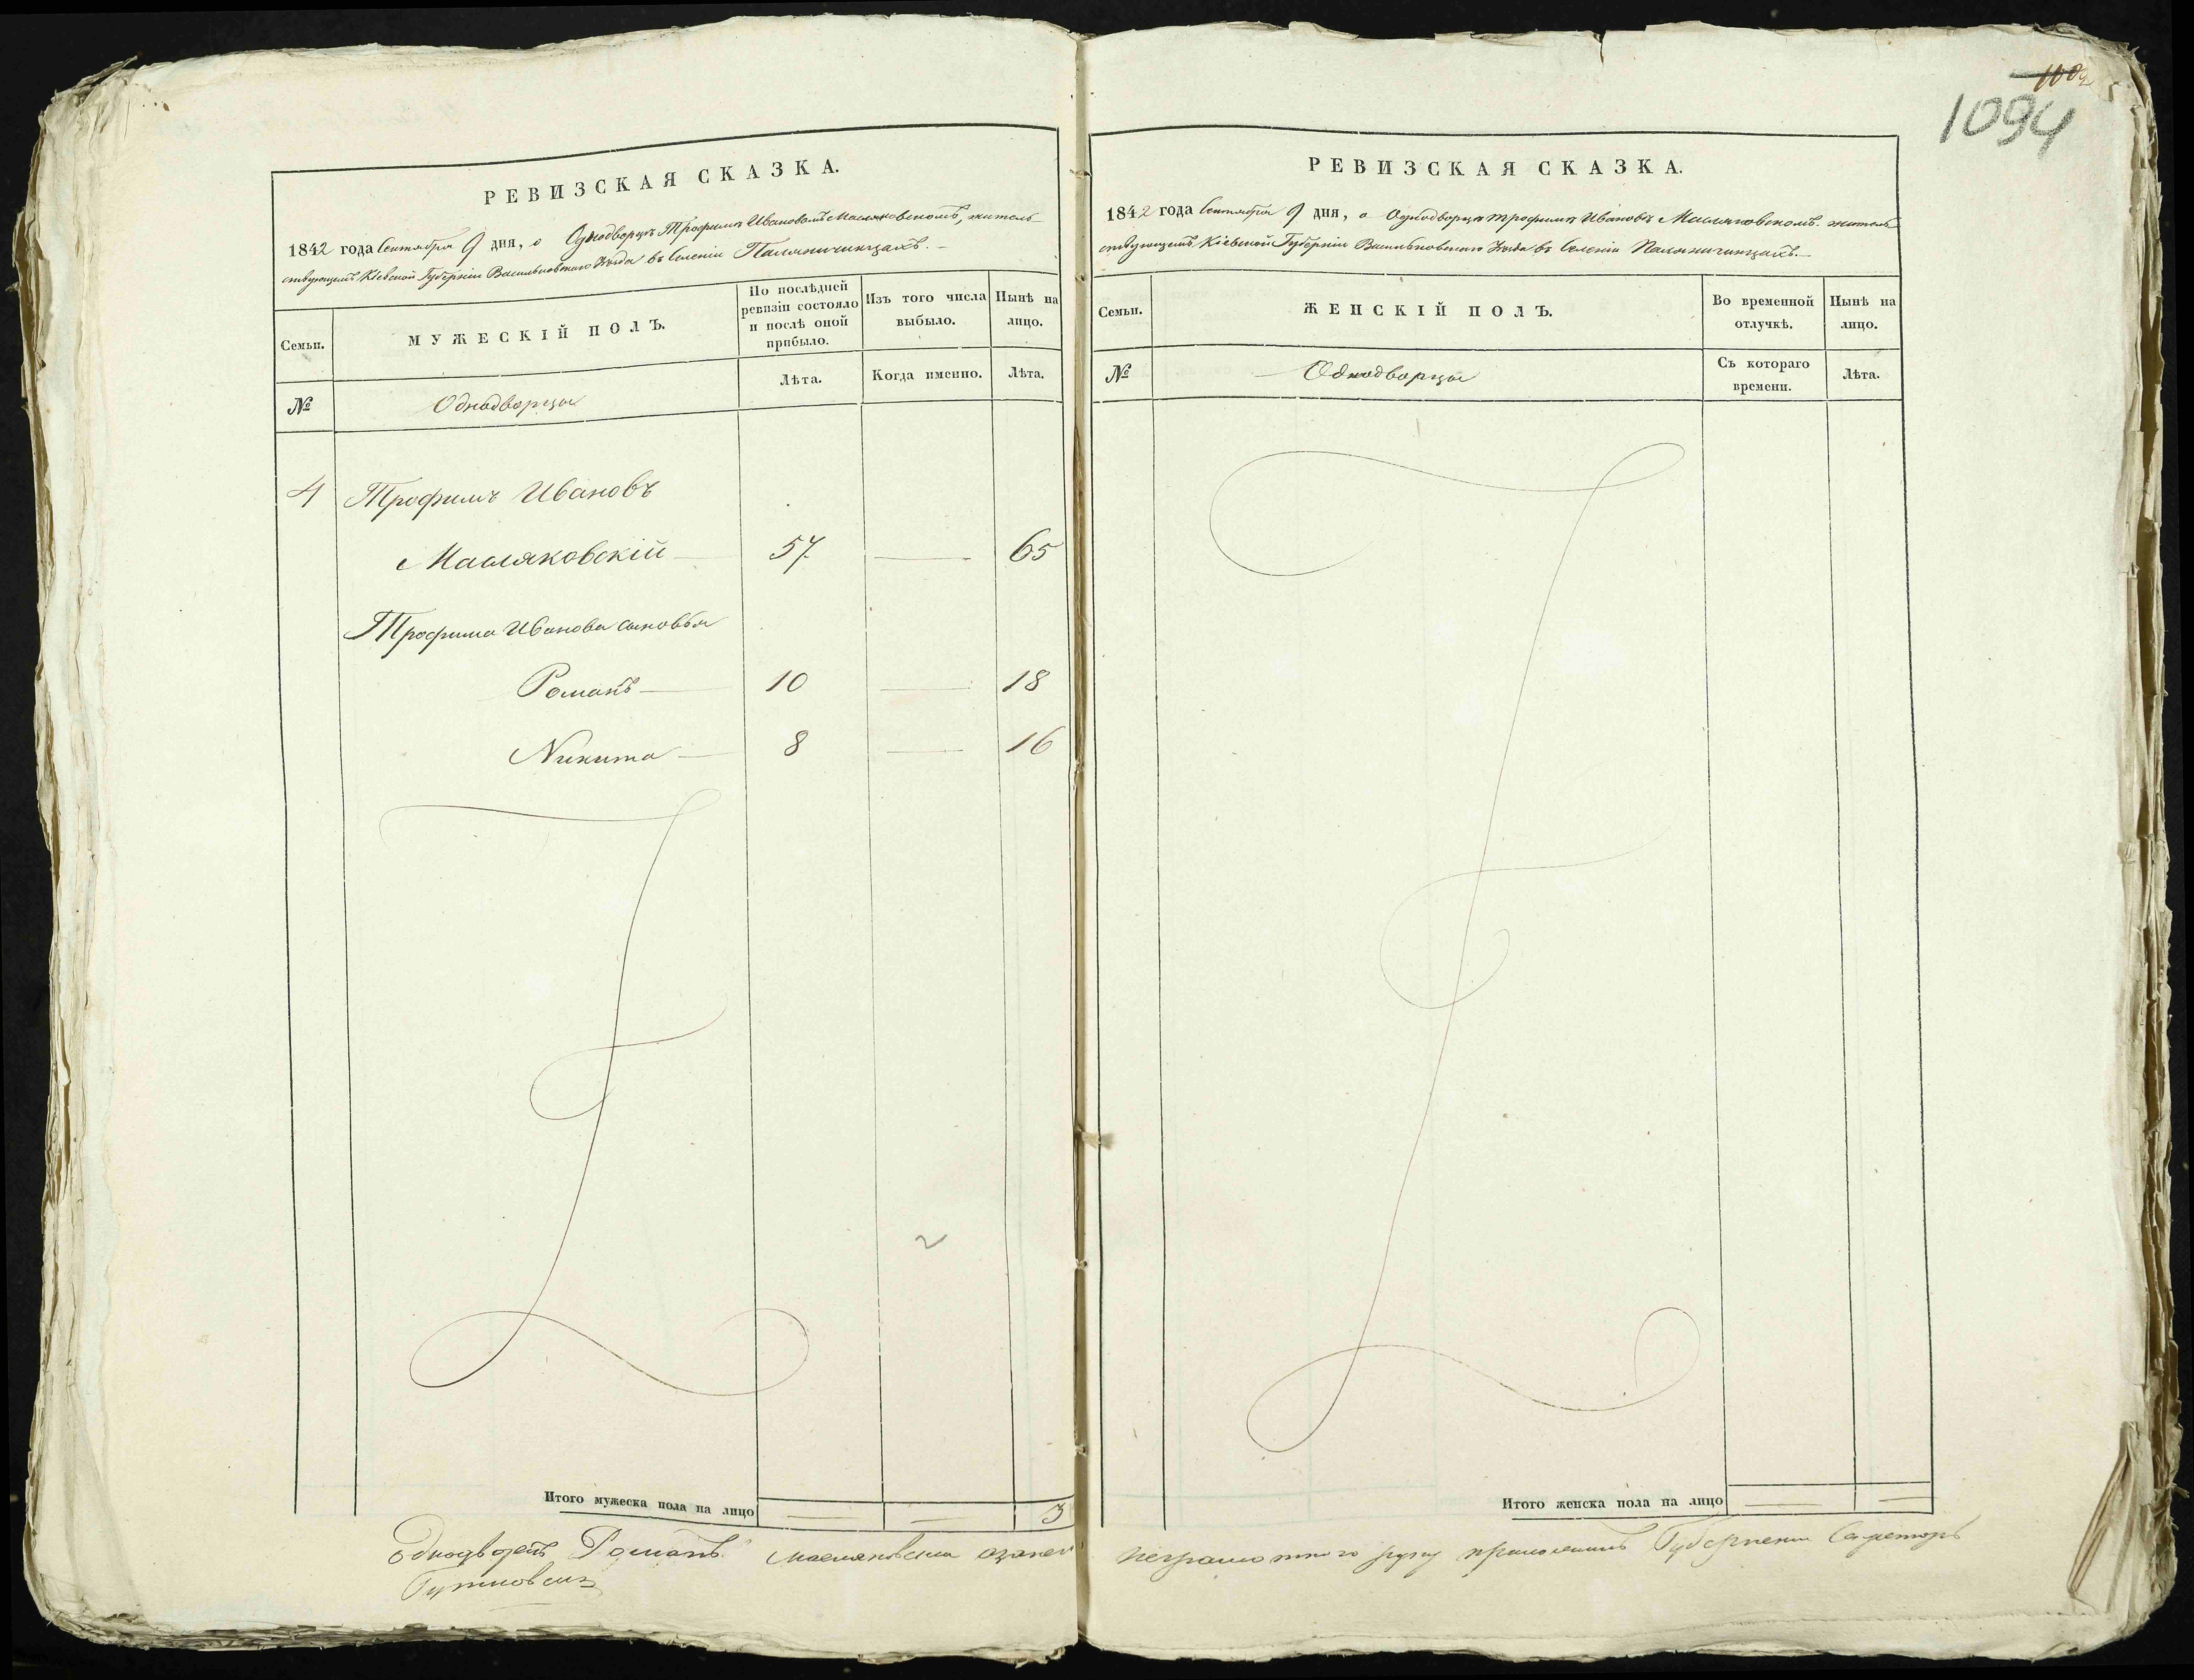 РЕВИЗСКАЯ СКАЗКА.
1842 года Сентября 9 дня, о Однодворцѣ Трофимѣ Ивановѣ Масляковскомъ, житель-
ствующемъ Кіевской Губерніи Васильковскаго Уѣзда въ Селеніи Паляничинцахъ.-
Семьи.
МУЖЕСКІЙ ПОЛЪ.
По послѣдней
ревизіи состояло
и послѣ оной
прибыло.
Изъ того числа
выбыло.
Нынѣ на
лицо.
№
Однодворцы
Лѣта.
Когда именно.
Лѣта.
4 Трофимъ Ивановъ
Масляковскій — 57 — 65
Трофима Иванова сыновья
Романъ — 10 — 18
Никита — 8 — 16
2
Итого мужеска пола на лицо — — 3
1094
РЕВИЗСКАЯ СКАЗКА.
1842 года Сентября 9 дня, о Однодворцѣ Трофимѣ Ивановѣ Масляковскомъ житель-
ствующемъ Кіевской Губерніи Васильковскаго Уѣзда въ Селеніи Паляничинцахъ.—
Семьи.
ЖЕНСКІЙ ПОЛЪ.
Во временной
отлучкѣ.
Нынѣ на
лицо.
№
Однодворцы
Съ котораго
времени.
Лѣта.
Итого женска пола на лицо — —
Однодворецъ Романъ Масляковскій а за него неграмотного руку приложилъ Губернскій Секретарь